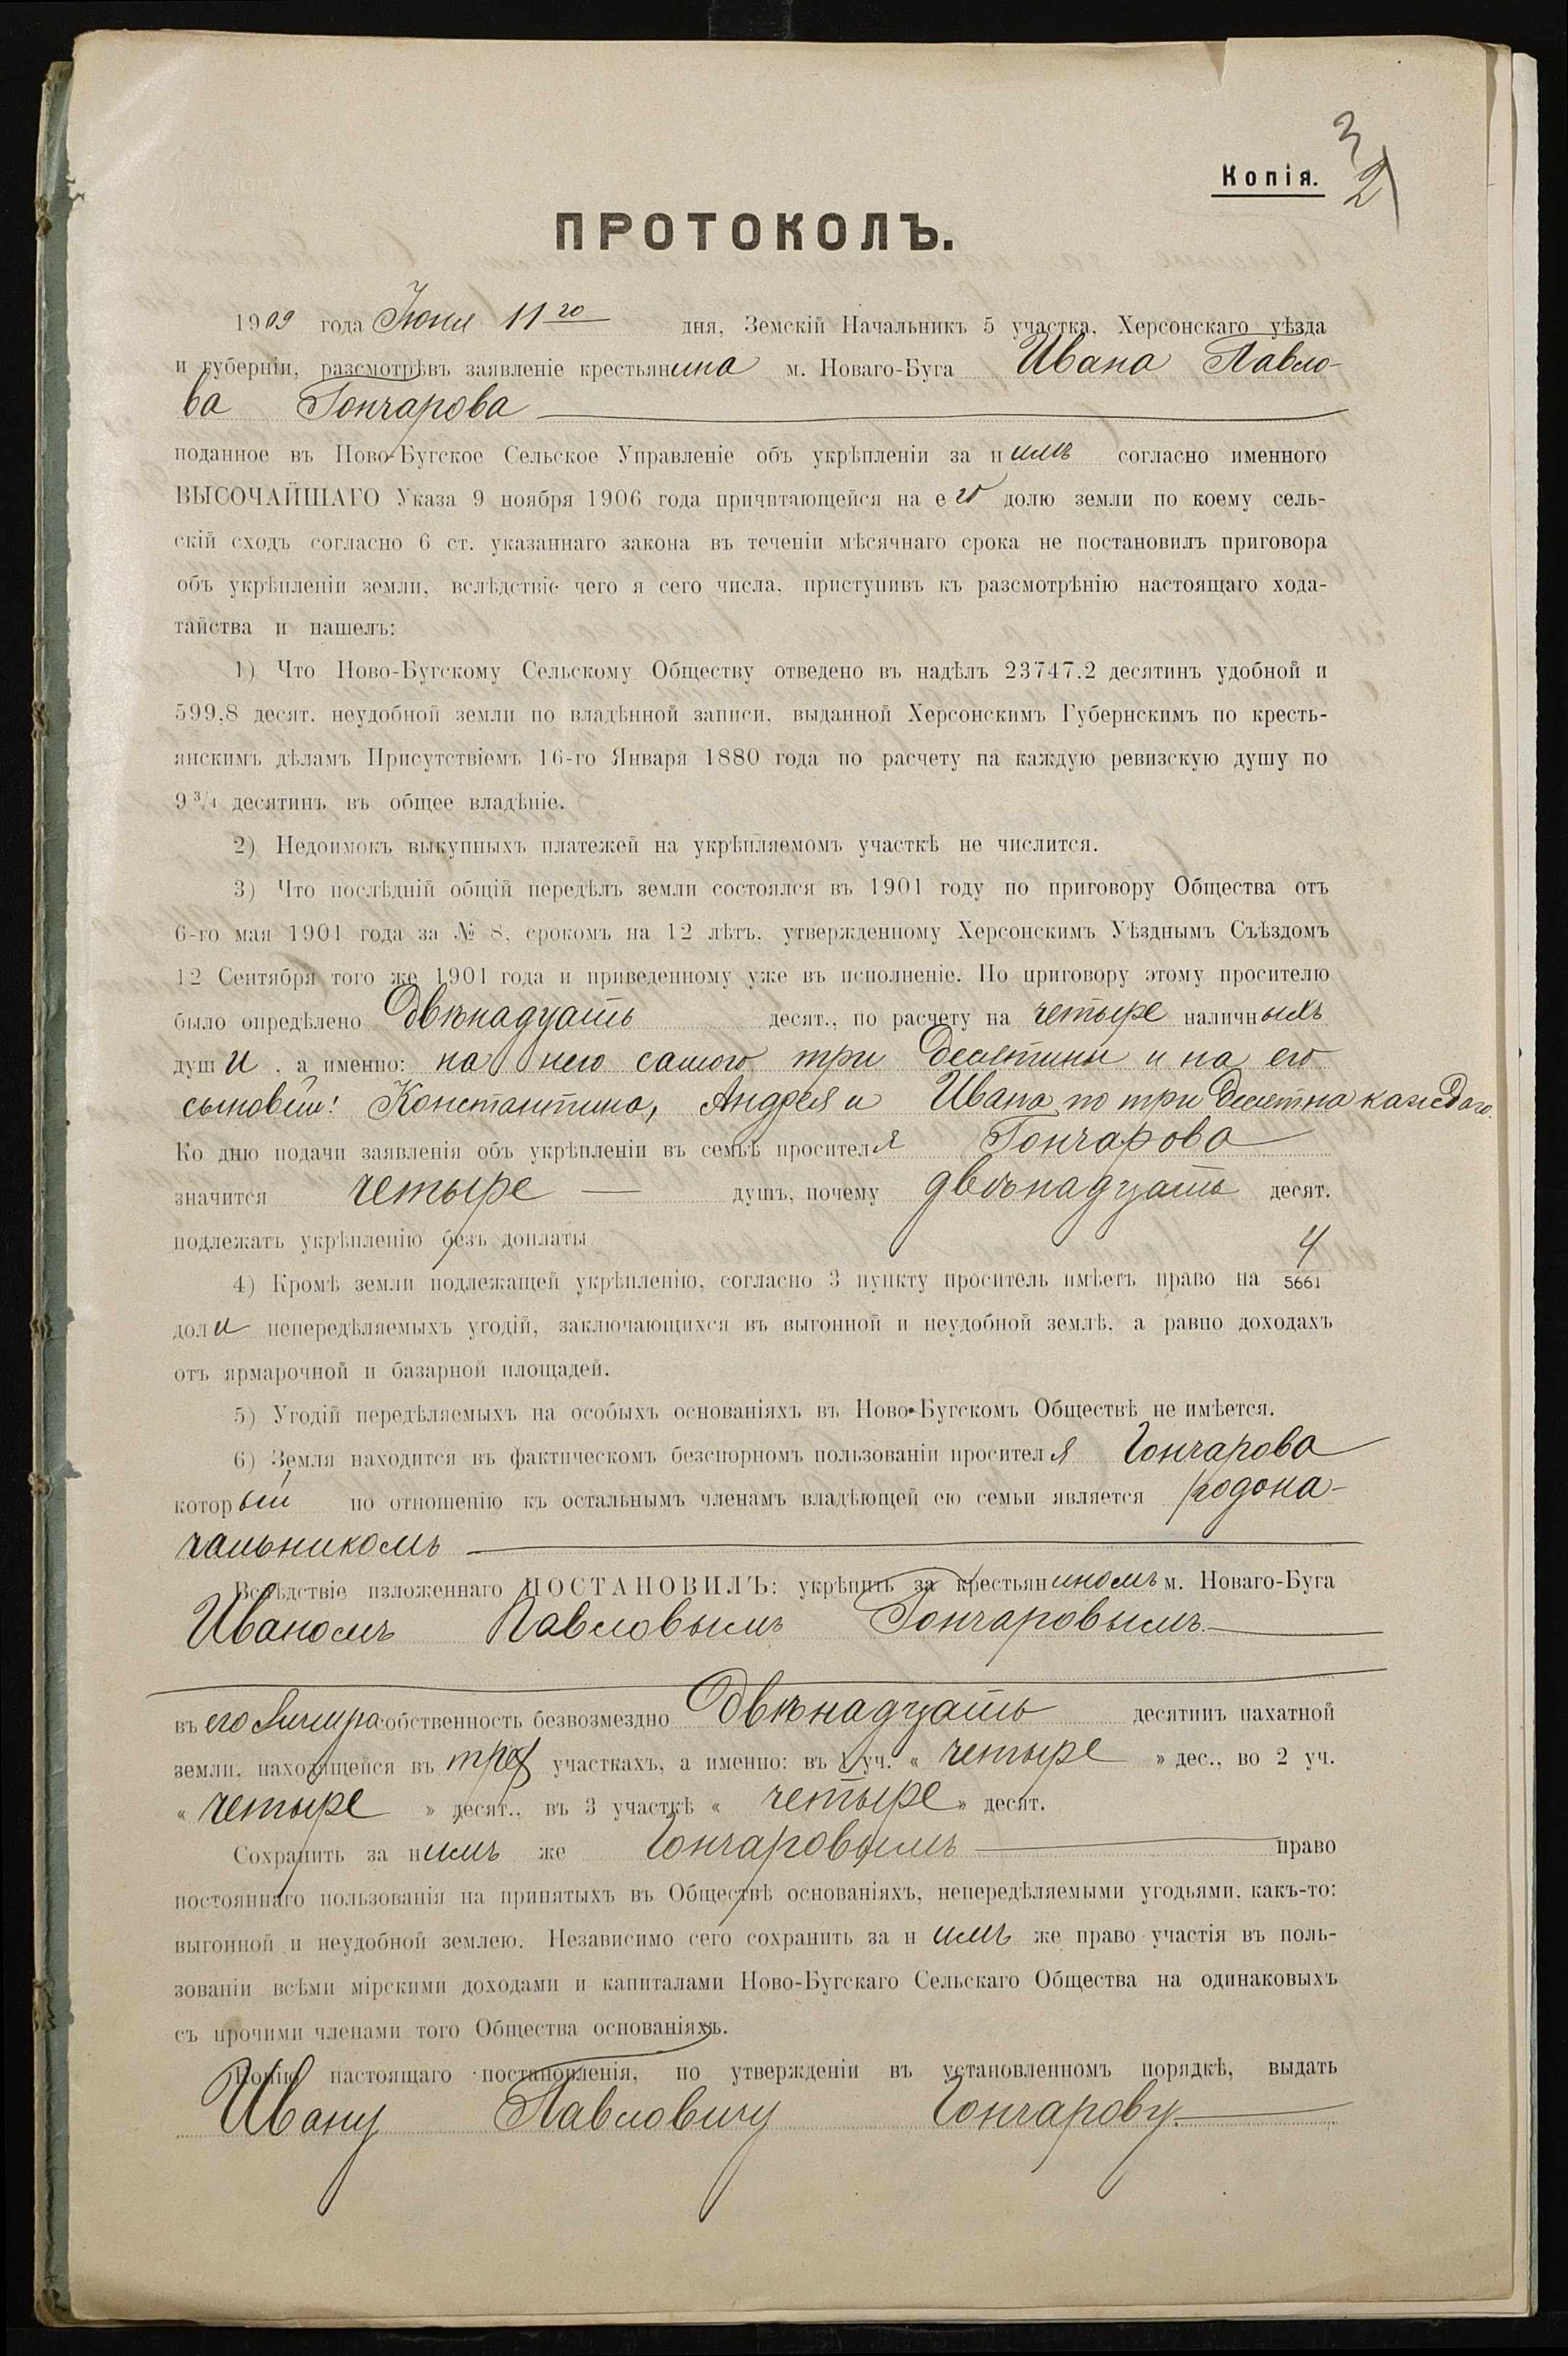 3
Копія.
2
ПРОТОКОЛЪ.
1909 года Іюня 11го дня, Земскій Начальникъ 5 участка, Херсонскаго уѣзда
и губерніи, разсмотрѣвъ заявленіе крестьянина м. Новаго-Буга Ивана Павло-
ва Гончарова
поданное въ Ново-Бугское Сельское Управленіе объ укрѣпленіи за нимъ согласно именного
ВЫСОЧАЙШАГО Указа 9 ноября 1906 года причитающейся на его долю земли по коему сель-
скій сходъ согласно 6 ст. указаннаго закона въ теченіи мѣсячнаго срока не постановилъ приговора
объ укрѣпленіи земли, вслѣдствіе чего я сего числа, приступивъ къ разсмотрѣнію настоящаго хода-
тайства и нашелъ:
1) Что Ново-Бугскому Сельскому Обществу отведено въ надѣлъ 23747,2 десятинъ удобной и
599,8 десят. неудобной земли по владѣнной записи, выданной Херсонскимъ Губернскимъ по кресть-
янскимъ дѣламъ Присутствіемъ 16-го Января 1880 года по расчету на каждую ревизскую душу по
9 3/4 десятинъ въ общее владѣніе.
2) Недоимокъ выкупныхъ платежей на укрѣпляемомъ участкѣ не числится.
3) Что послѣдній общій передѣлъ земли состоялся въ 1901 году по приговору Общества отъ
6-го мая 1901 года за № 8, срокомъ на 12 лѣтъ, утвержденному Херсонскимъ Уѣзднымъ Съѣздомъ
12 Сентября того же 1901 года и приведенному уже въ исполненіе. По приговору этому просителю
было опредѣлено двѣнадцать десят., по расчету на четыре наличныхъ
души, а именно: на него самого три десятины и на его
сыновей: Константина, Андрея и Ивана по три десят на каждаго.
Ко дню подачи заявленія объ укрѣпленіи въ семьѣ просителя Гончарова
значится четыре — душъ, почему двѣнадцать десят.
подлежатъ укрѣпленію безъ доплаты
4) Кромѣ земли подлежащей укрѣпленію, согласно 3 пункту проситель имѣетъ право на 4/5661
доли непередѣляемыхъ угодій, заключающихся въ выгонной и неудобной землѣ, а равно доходахъ
отъ ярмарочной и базарной площадей.
5) Угодій передѣляемыхъ на особыхъ основаніяхъ въ Ново-Бугскомъ Обществѣ не имѣется.
6) Земля находится въ фактическомъ безспорномъ пользованіи просителя Гончарова
который по отношенію къ остальнымъ членамъ владѣющей ею семьи является родона-
чальникомъ
Вслѣдствіе изложеннаго ПОСТАНОВИЛЪ: укрѣпить за крестьяниномъ м. Новаго-Буга
Иваномъ Павловымъ Гончаровымъ
въ его личную собственность безвозмездно двѣнадцать десятинъ пахатной
земли, находящейся въ трех участкахъ, а именно: въ 1 уч. « четыре » дес., во 2 уч.
« четыре » десят., въ 3 участкѣ « четыре » десят.
Сохранить за нимъ же Гончаровымъ право
постояннаго пользованія на принятыхъ въ Обществѣ основаніяхъ, непередѣляемыми угодьями, какъ-то:
выгонной и неудобной землею. Независимо сего сохранить за нимъ же право участія въ поль-
зованіи всѣми мірскими доходами и капиталами Ново-Бугскаго Сельскаго Общества на одинаковыхъ
съ прочими членами того Общества основаніяхъ.
Копію настоящаго постановленія, по утвержденіи въ установленномъ порядкѣ, выдать
Ивану Павловичу Гончарову.